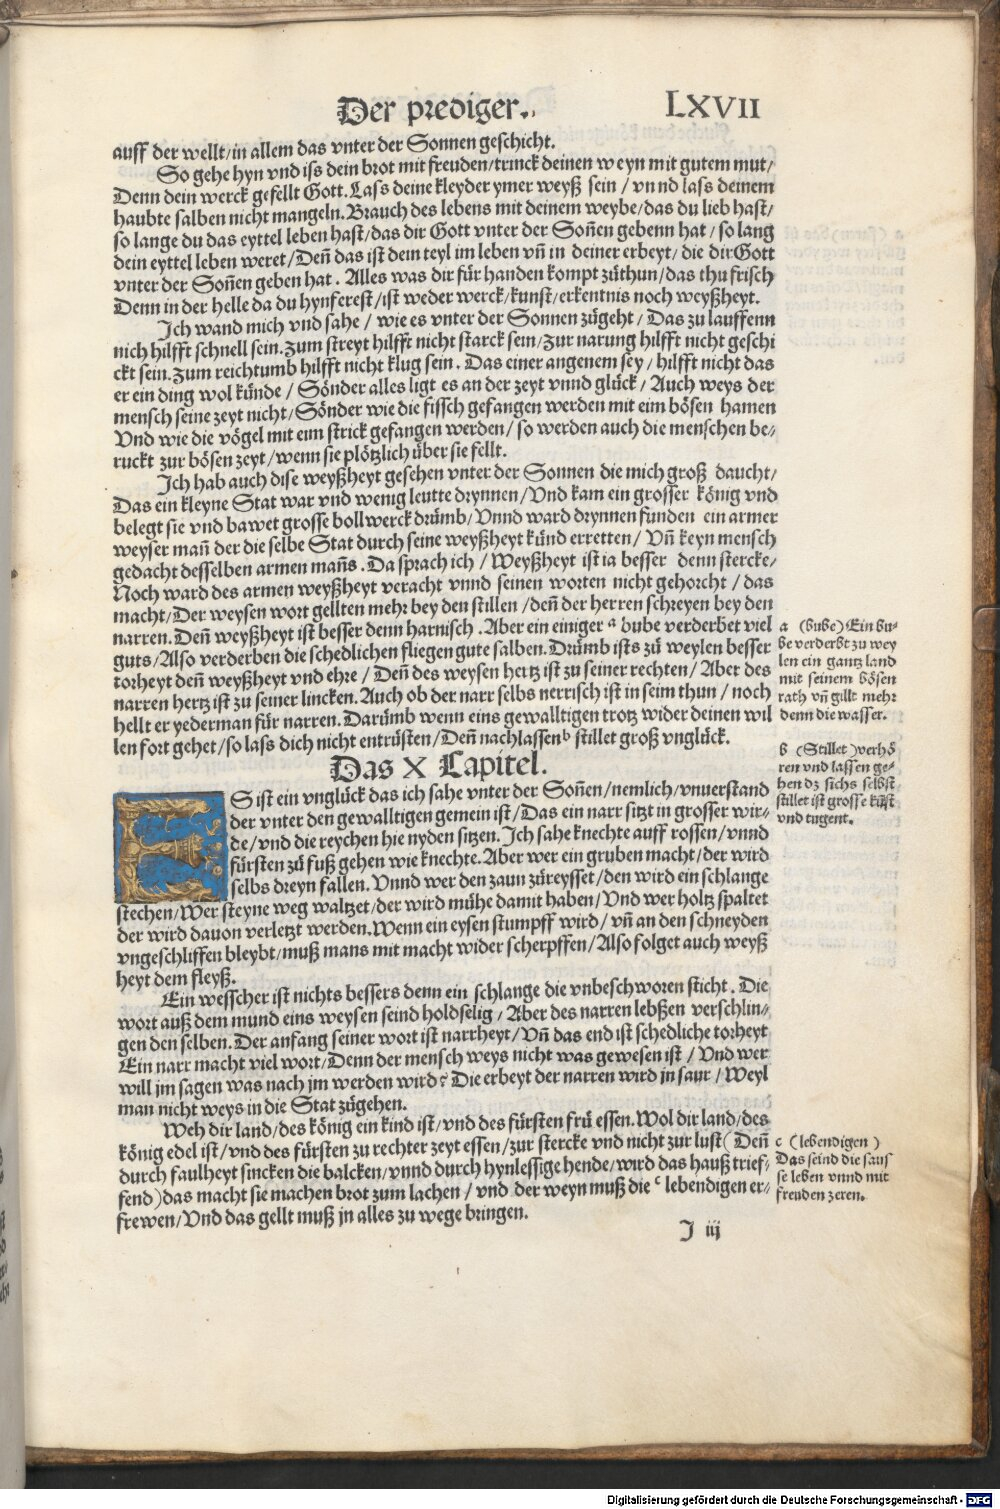 Der prediger. LXVII
auff der wellt/in allem das vnter der Sonnen geschicht.
So gehe hyn vnd iss dein brot mit freuden/trinck deinen weyn mit gutem mut/
Denn dein werck gefellt Gott. Lass deine kleyder ymer weyß sein/vnnd lass deinem
haubte salben nicht mangeln. Brauch des lebens mit deinem weybe/das du lieb hast/
so lange du das eyttel leben hast/das dir Gott vnter der Soñen gebenn hat/so lang
dein eyttel leben weret/Deñ das ist dein teyl im leben vñ in deiner erbeyt/die dir Gott
vnter der Soñen geben hat. Alles was dir für handen kompt zůthun/das thu frisch
Denn in der helle da du hynferest/ist weder werck/kunst/erkentnis noch weyßheyt.
Ich wand mich vnd sahe/wie es vnter der Sonnen zůgeht/Das zu lauffenn
nich hilfft schnell sein. Zum streyt hilfft nicht starck sein/Zur narung hilfft nicht geschi
ckt sein. Zum reichtumb hilfft nicht klug sein. Das einer angenem sey/hilfft nicht das
er ein ding wol künde/Sönder alles ligt es an der zeyt vnnd glück/Auch weys der
mensch seine zeyt nicht/Sönder wie die fissch gefangen werden mit eim bösen hamen
Vnd wie die vögel mit eim strick gefangen werden/so werden auch die menschen be-
ruckt zur bösen zeyt/wenn sie plötzlich über sie fellt.
Ich hab auch dise weyßheyt gesehen vnter der Sonnen die mich groß daucht/
Das ein kleyne Stat war vnd wenig leutte drynnen/Vnd kam ein grosser könig vnd
belegt sie vnd bawet grosse bollwerck drümb/Vnnd ward drynnen funden ein armer
weyser mañ der die selbe Stat durch seine weyßheyt künd erretten/Vñ keyn mensch
gedacht desselben armen mañs. Da sprach ich/Weyßheyt ist ia besser denn stercke/
Noch ward des armen weyßheyt veracht vnnd seinen worten nicht gehorcht/das
macht/Der weysen wort gellten mehr bey den stillen/deñ der herren schreyen bey den
narren. Deñ weyßheyt ist besser denn harnisch. Aber ein einiger a bube verderbet viel
guts/Also verderben die schedlichen fliegen gute salben. Drümb ists zů weylen besser
torheyt deñ weyßheyt vnd ehre/Deñ des weysen hertz ist zu seiner rechten/Aber des
narren hertz ist zu seiner lincken. Auch ob der narr selbs nerrisch ist in seim thun/noch
hellt er yederman für narren. Darümb wenn eins gewalltigen trotz wider deinen wil
len fort gehet/so lass dich nicht entrüsten/Deñ nachlassen b stillet groß vnglück.
a (bube) Ein bu-
be verderbt zu wey
len ein gantz land
mit seinem bösen
rath vñ gillt mehr
denn die wasser.
b (Stillet) verhö
ren vnd lassen ge-
hen dz sichs selbst
stillet ist grosse kunst
vnd tugent.
Das X Capitel.
S ist ein vnglück das ich sahe vnter der Soñen/nemlich/vnuerstand
der vnter den gewalltigen gemein ist/Das ein narr sitzt in grosser wir-
de/vnd die reychen hie nyden sitzen. Ich sahe knechte auff rossen/vnnd
fürsten zů fuß gehen wie knechte. Aber wer ein gruben macht/der wird
selbs dreyn fallen. Vnnd wer den zaun zůreysset/den wird ein schlange
stechen/Wer steyne weg waltzet/der wird mühe damit haben/Vnd wer holtz spaltet
der wird dauon verletzt werden. Wenn ein eysen stumpff wird/vñ an den schneyden
vngeschliffen bleybt/muß mans mit macht wider scherpffen/Also folget auch weyß
heyt dem fleyß.
Ein wesscher ist nichts bessers denn ein schlange die vnbeschworen sticht. Die
wort auß dem mund eins weysen seind holdselig/Aber des narren lebßen verschlin-
gen den selben. Der anfang seiner wort ist narrheyt/Vñ das end ist schedliche torheyt
Ein narr macht viel wort/Denn der mensch weys nicht was gewesen ist/Vnd wer
will jm sagen was nach jm werden wird? Die erbeyt der narren wird jn saur/Weyl
man nicht weys in die Stat zůgehen.
Weh dir land/des könig ein kind ist/vnd des fürsten frü essen. Wol dir land/des
könig edel ist/vnd des fürsten zu rechter zeyt essen/zur stercke vnd nicht zur lust (Deñ
durch faulheyt sincken die balcken/vnnd durch hynlessige hende/wird das hauß trief-
fend) das macht sie machen brot zum lachen/vnd der weyn muß die c lebendigen er-
frewen/Vnd das gellt muß jn alles zu wege bringen.
c (lebendigen)
Das seind die saus
se leben vnnd mit
freuden zeren.
J iij
Digitalisierung gefördert durch die Deutsche Forschungsgemeinschaft - DFG